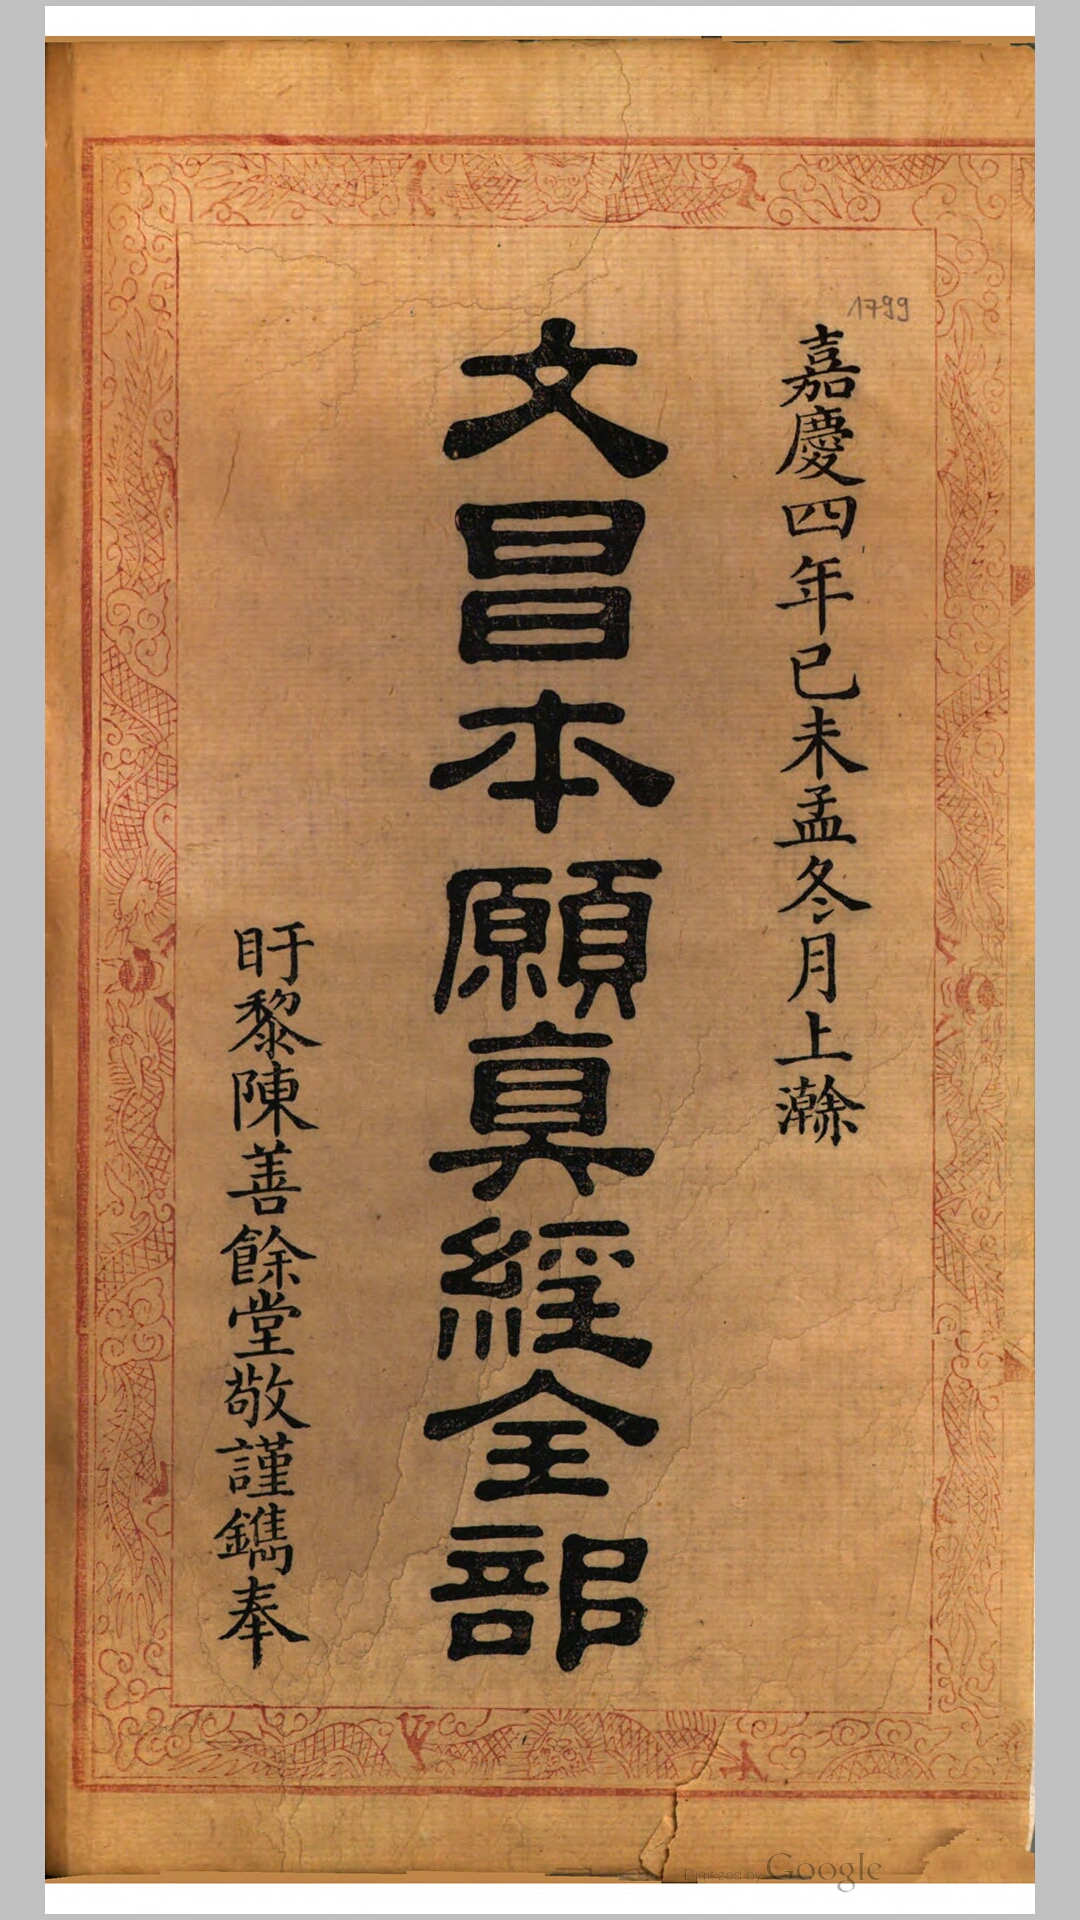 1799
嘉慶四年已未孟冬月上澣
文昌本願眞經全部
盱黎陳善餘堂敬謹鐫奉
Digitized by Google